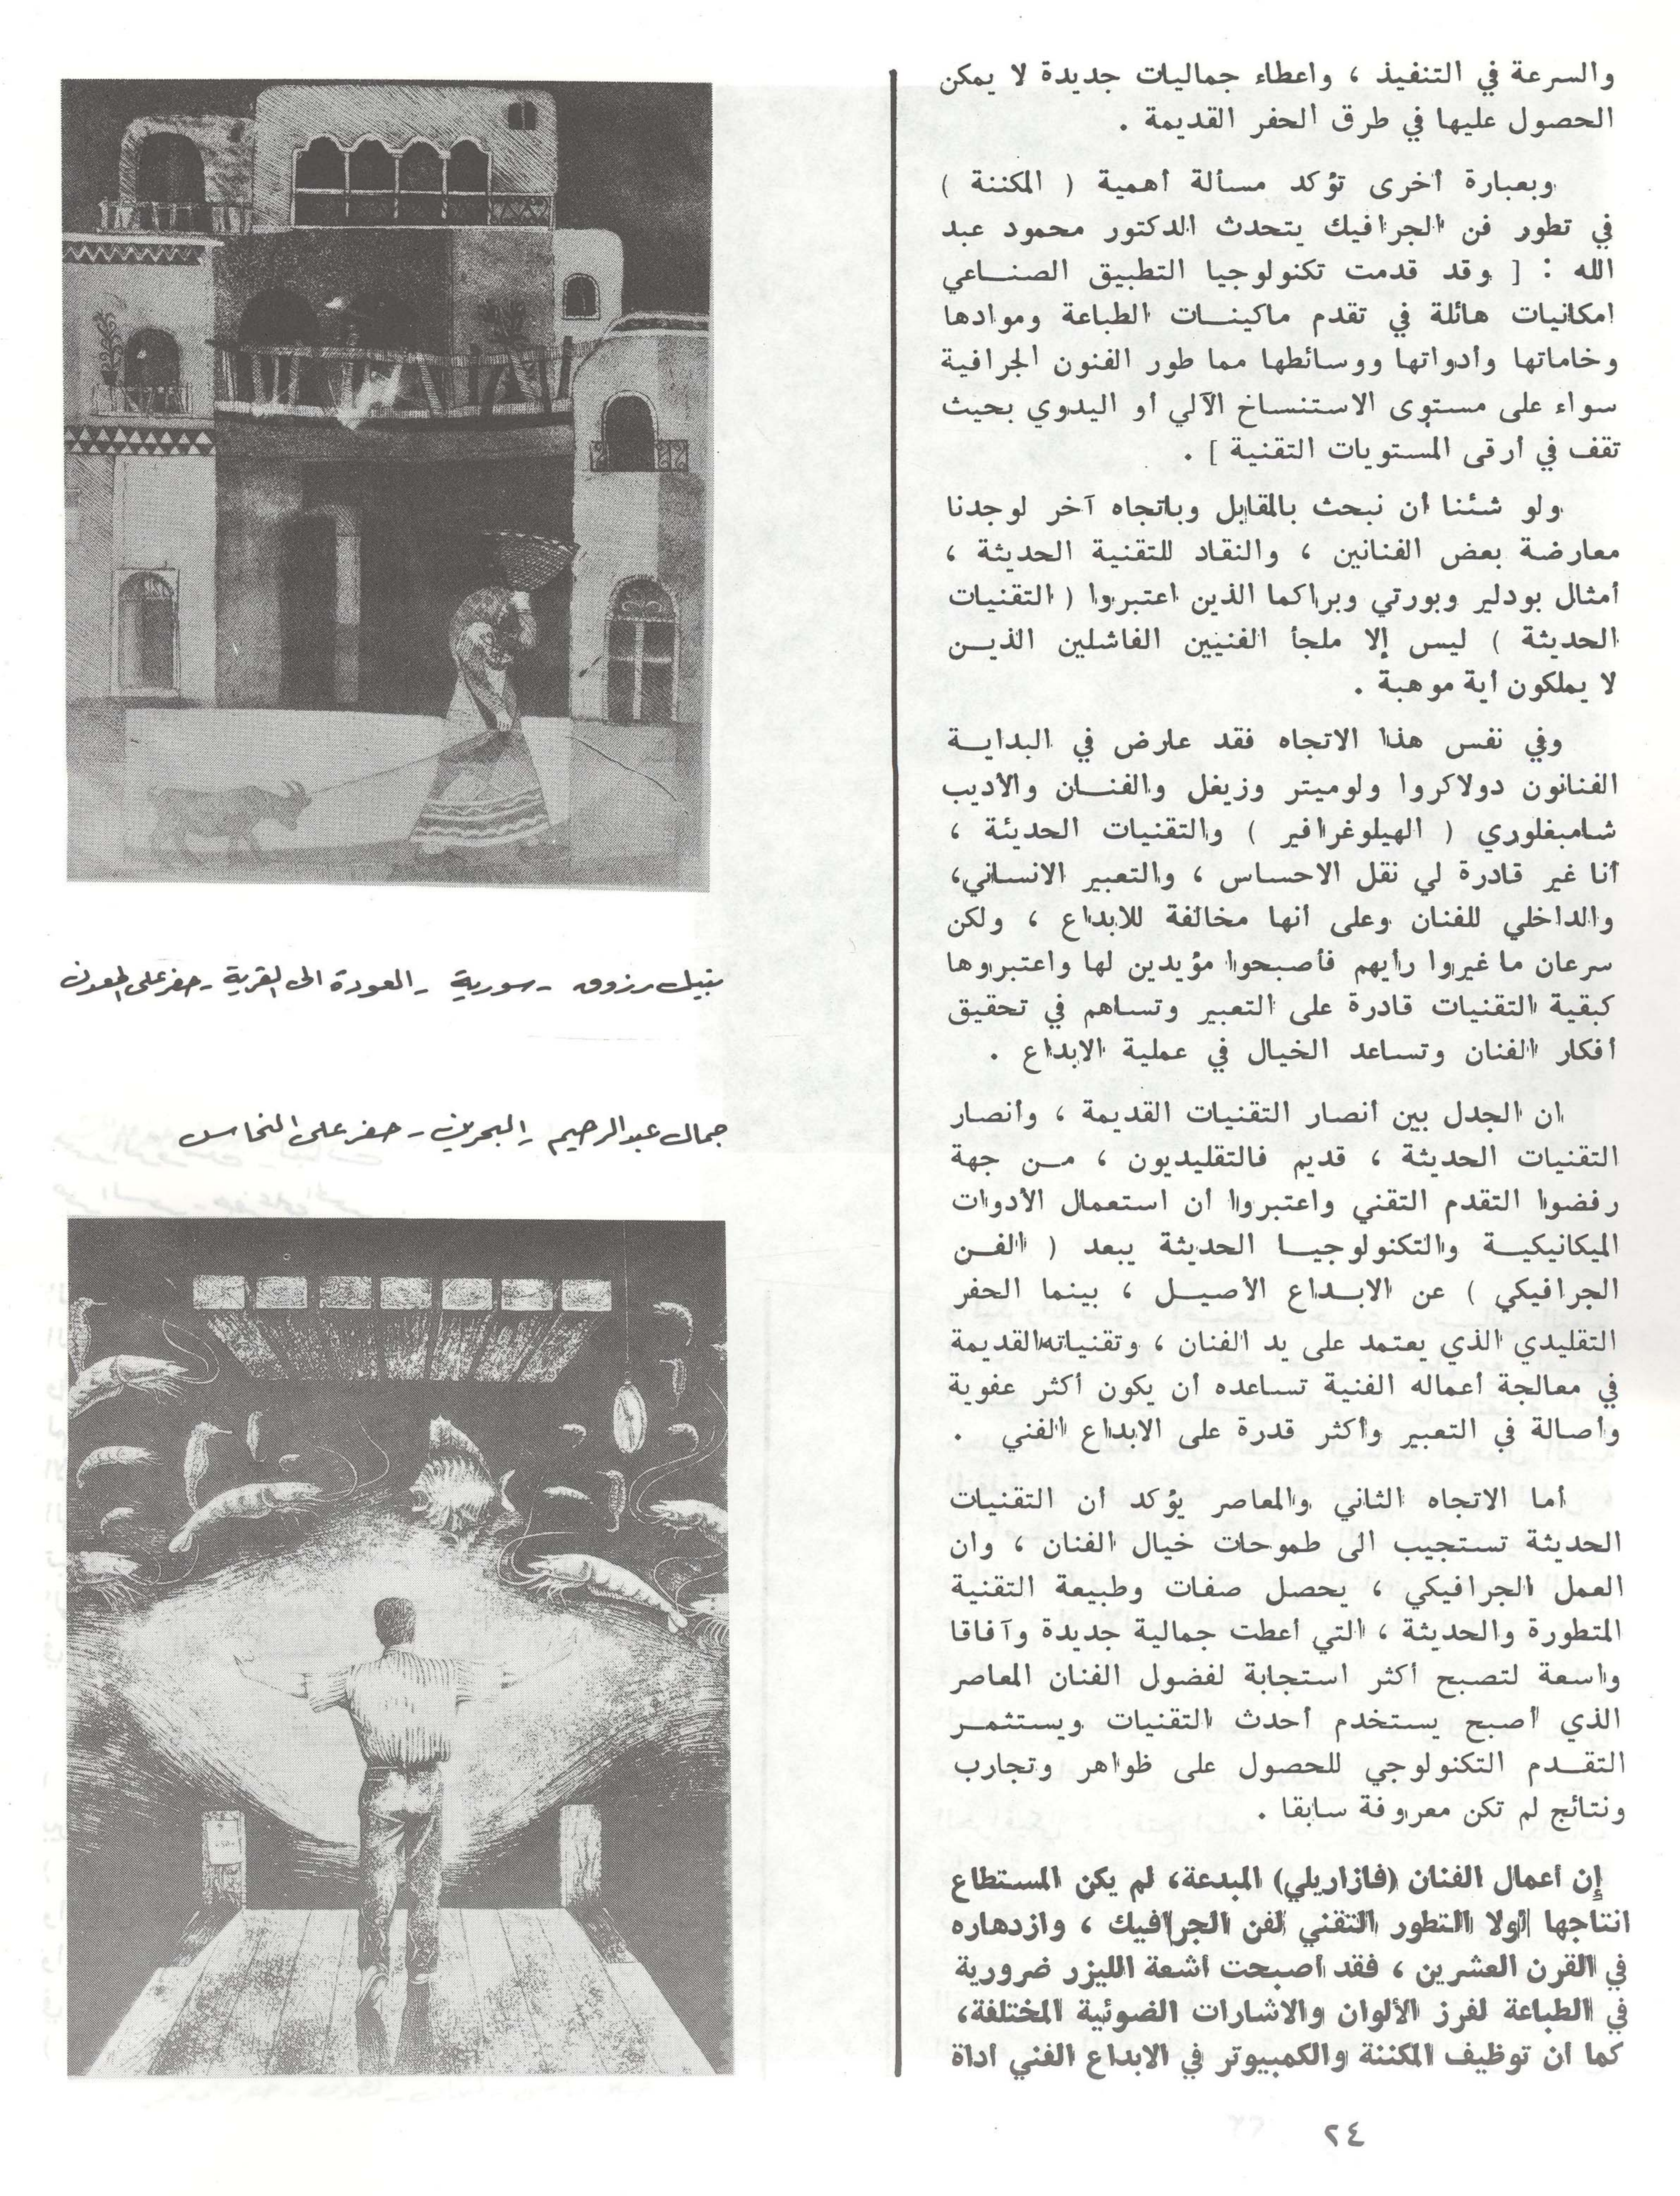 والسرعة في التنفيذ ، واعطاء جماليات جديدة لا يمكن
الحصول عليها في طرق الحفر القديمة .
وبعبارة أخرى تؤكد مسألة أهمية ( المكننة )
في تطور فن الجرافيك يتحدث الدكتور محمود عبد
الله : [ وقد قدمت تكنولوجيا التطبيق الصناعي
امكانيات هائلة في تقدم ماكينات الطباعة وموادها
وخاماتها وأدواتها ووسائطها مما طور الفنون الجرافية
سواء على مستوى الاستنساخ الآلي أو اليدوي بحيث
تقف في أرقى المستويات التقنية ] .
ولو شئنا أن نبحث بالمقابل وباتجاه آخر لوجدنا
معارضة بعض الفنانين ، والنقاد للتقنية الحديثة ،
أمثال بودلير وبورتي وبراكما الذين اعتبروا ( التقنيات
الحديثة ) ليس إلا ملجأ الفنيين الفاشلين الذين
لا يملكون أية موهبة .
وفي نفس هذا الاتجاه فقد عارض في البداية
الفنانون دولاكروا ولوميتر وزيغل والفنان والأديب
شامبفلوري ( الهيلوغرافير ) والتقنيات الحديثة ،
أنا غير قادرة لي نقل الاحساس ، والتعبير الانساني،
والداخلي للفنان وعلى أنها مخالفة للابداع ، ولكن
سرعان ما غيروا رأيهم فأصبحوا مؤيدين لها واعتبروها
كبقية التقنيات قادرة على التعبير وتساهم في تحقيق
أفكار الفنان وتساعد الخيال في عملية الابداع .
ان الجدل بين أنصار التقنيات القديمة ، وأنصار
التقنيات الحديثة ، قديم فالتقليديون ، من جهة
رفضوا التقدم التقني واعتبروا أن استعمال الأدوات
الميكانيكية والتكنولوجيا الحديثة يبعد ( الفن
الجرافيكي ) عن الابداع الأصيل ، بينما الحفر
التقليدي الذي يعتمد على يد الفنان ، وتقنياته القديمة
في معالجة أعماله الفنية تساعده أن يكون أكثر عفوية
وأصالة في التعبير وأكثر قدرة على الابداع الفني .
أما الاتجاه الثاني والمعاصر يؤكد أن التقنيات
الحديثة تستجيب الى طموحات خيال الفنان ، وان
العمل الجرافيكي ، يحصل صفات وطبيعة التقنية
المتطورة والحديثة ، التي أعطت جمالية جديدة وآفاقا
واسعة لتصبح أكثر استجابة لفضول الفنان المعاصر
الذي أصبح يستخدم أحدث التقنيات ويستثمر
التقدم التكنولوجي للحصول على ظواهر وتجارب
ونتائج لم تكن معروفة سابقا .
إن أعمال الفنان (فازاريلي) المبدعة، لم يكن المستطاع
انتاجها لولا التطور التقني لفن الجرافيك ، وازدهاره
في القرن العشرين ، فقد أصبحت أشعة الليزر ضرورية
في الطباعة لفرز الألوان والاشارات الضوئية المختلفة،
كما أن توظيف المكننة والكمبيوتر في الابداع الفني أداة
نبيل رزوق - سورية - العودة الى القرية - حفر على المعدن
جمال عبد الرحيم - البحرين - حفر على النحاس
٢٤